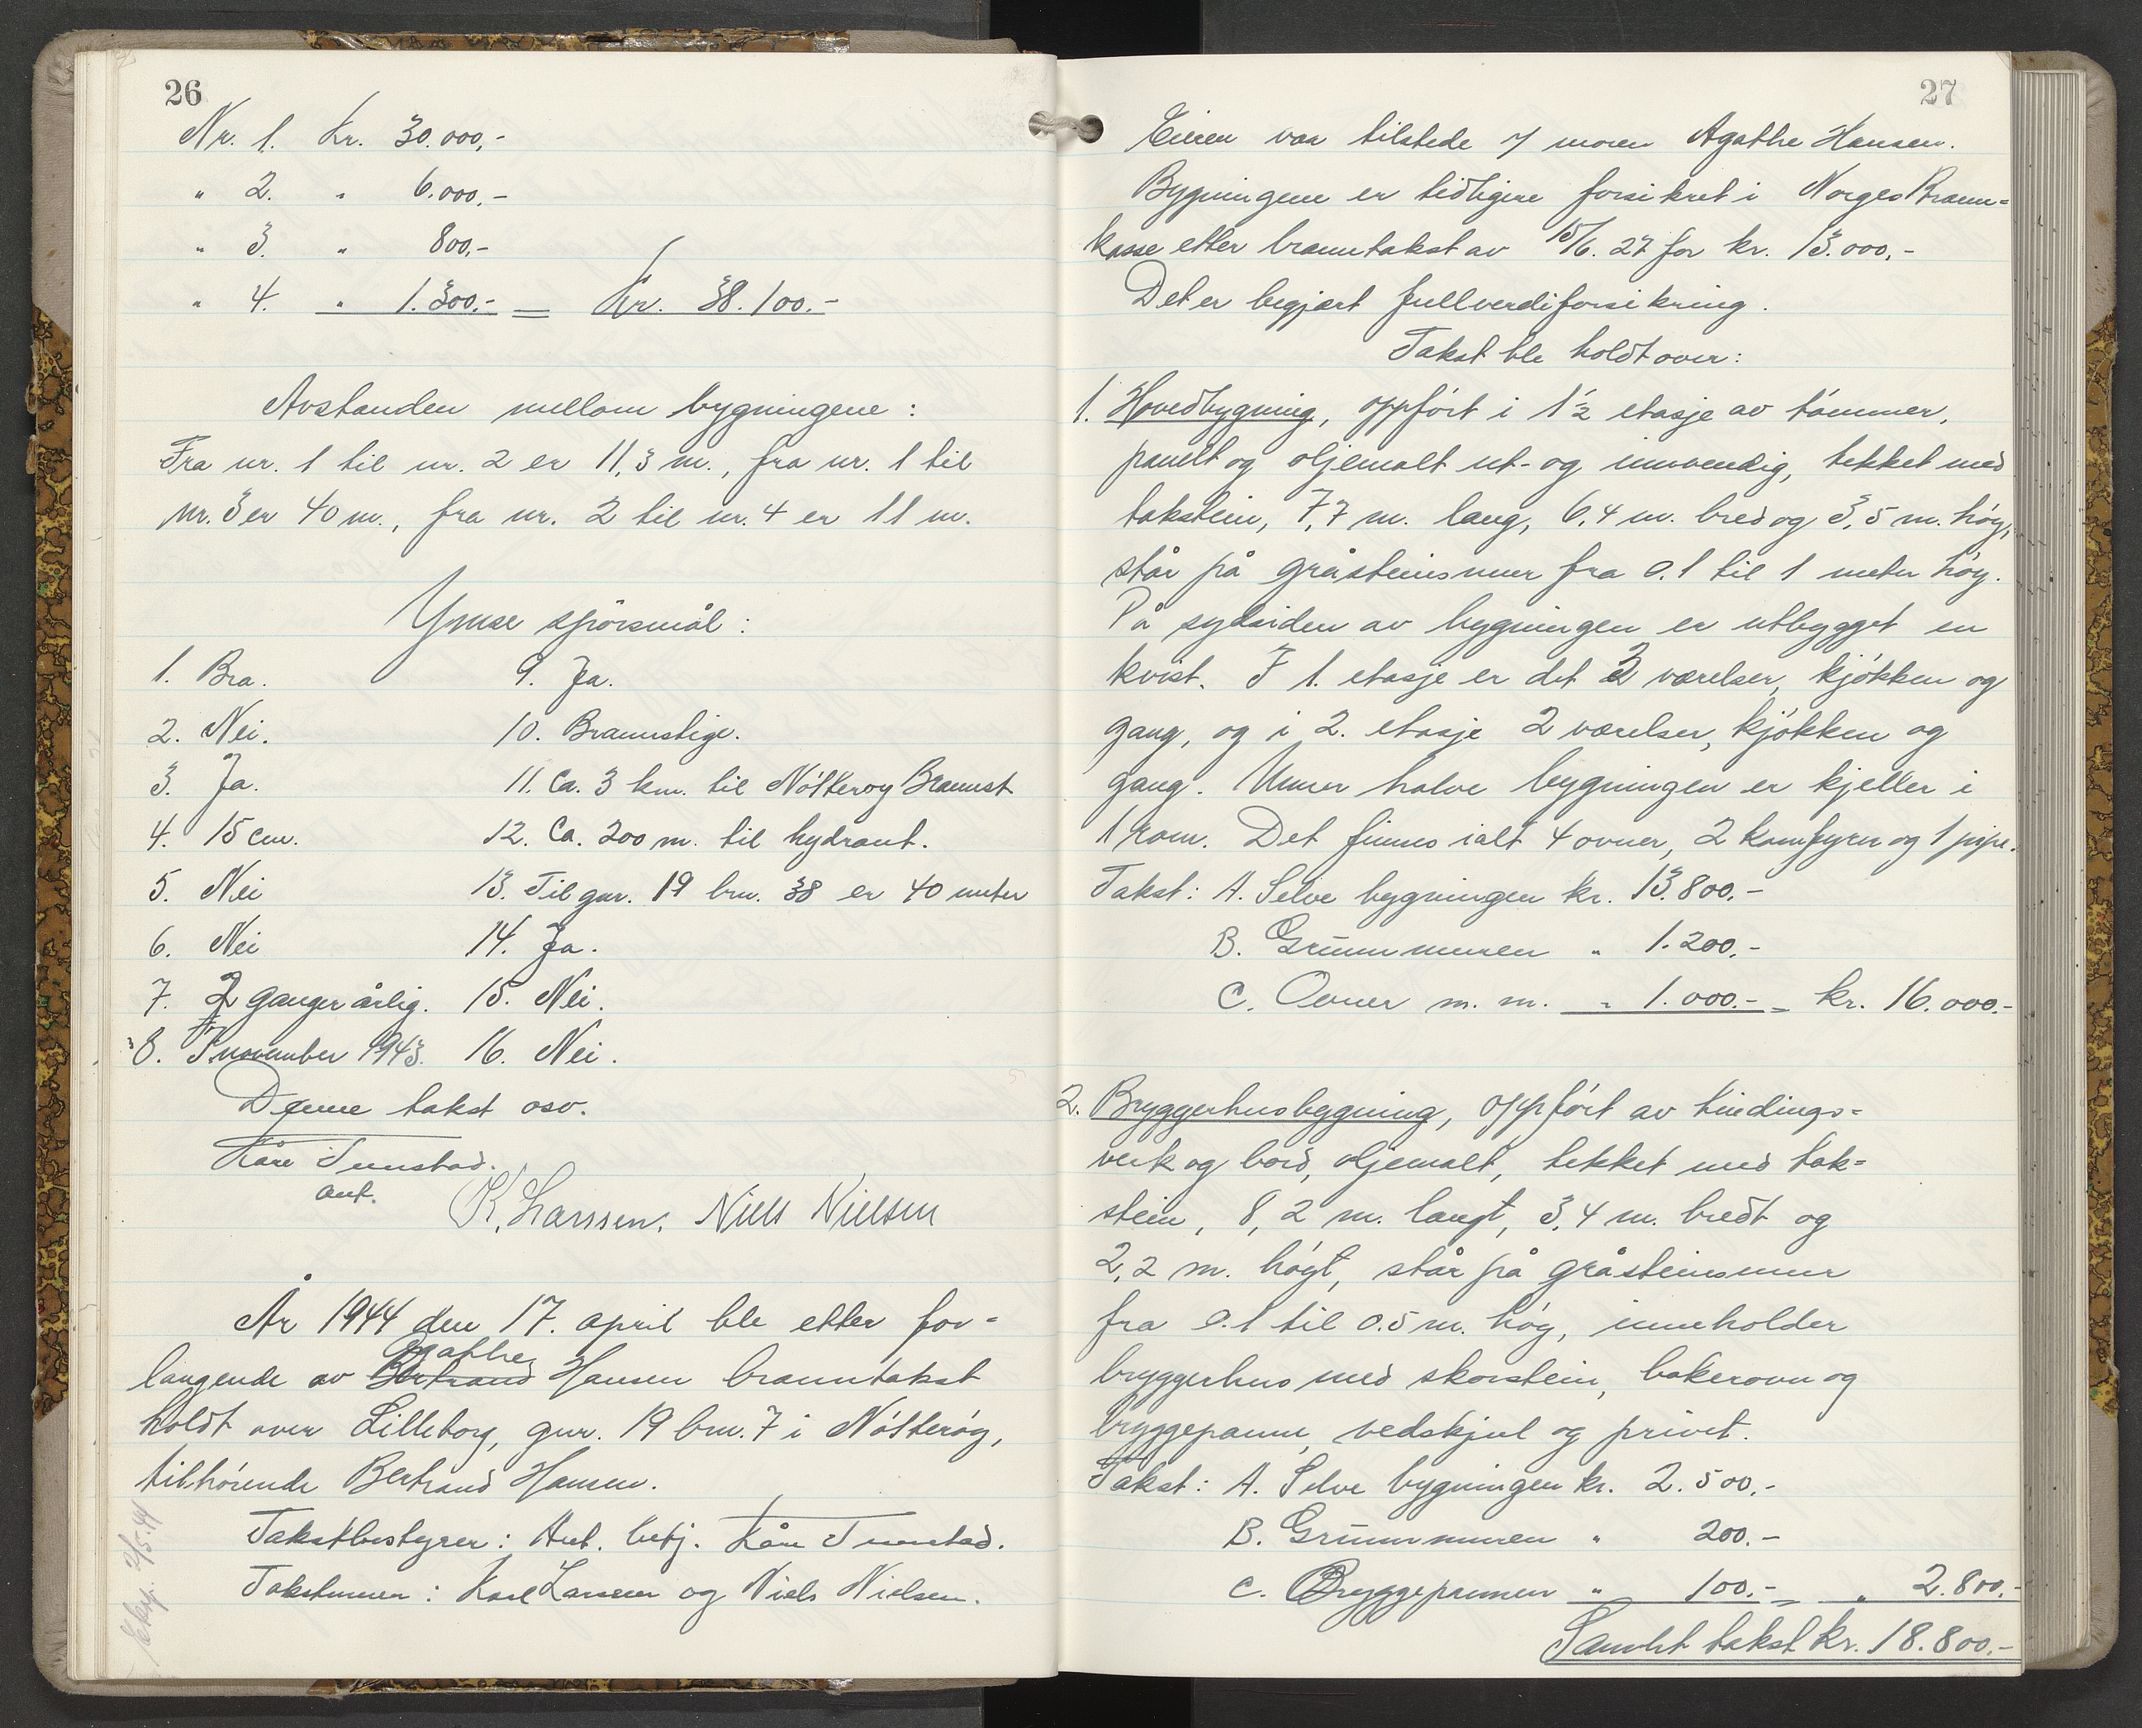 26
Nr. 1. Kr. 30.000,-
" 2. " 6.000,-
" 3. " 800,-
" 4. " 1.300.- = Kr. 38.100.-
Avstanden mellom bygningene:
Fra nr. 1 til nr. 2 er 11,3 m., fra nr. 1 til
nr. 3 er 40 m., fra nr. 2 til nr. 4 er 11 m.
Ymse spörsmål:
1. Bra.
2. Nei.
3. Ja.
4. 15 cm.
5. Nei
6. Nei
7. 2 ganger årlig.
8. I november 1943.
9. Ja.
10. Brannstige.
11. Ca. 3 km. til Nötteröy Brannst
12. Ca. 200 m. til hydrant.
13. Til gnr. 19 bnr. 38 er 40 meter
14. Ja.
15. Nei.
16. Nei.
Denne takst osv.
Kåre Tunstad.
aut.
K. Larssen. Niels Nielsen
År 1944 den 17. april ble etter for-
langende av Bertrand Agathe Hansen branntakst
holdt over Lilleborg, gnr. 19 bnr. 7 i Nötteröy,
tilhörende Bertrand Hansen.
Takstbestyrer: Aut. betj. Kåre Tunstad.
Takstmenn: Karl Larssen og Niels Nielsen.
Eksp. 2/5.44
27
Eieren var tilstede v/ moren Agathe Hansen.
Bygningene er tidligere forsikret i Norges Brann-
kasse etter branntakst av 15/6. 27 for kr. 13.000,-
Det er begjært fullverdiforsikring.
Takst ble holdt over:
1. Hovedbygning, oppfört i 1½ etasje av tömmer,
panelt og oljemalt ut- og innvendig, tekket med
takstein, 7,7 m. lang, 6,4 m. bred og 3,5 m. höy,
står på gråsteinsmur fra 0.1 til 1 meter höy.
På sydsiden av bygningen er utbygget en
kvist. I 1. etasje er det 2 værelser, kjökken og
gang, og i 2. etasje 2 værelser, kjökken og
gang. Under halve bygningen er kjeller i
1 rom. Det finnes ialt 4 ovner, 2 komfyrer og 1 pipe.
Takst: A. Selve bygningen kr. 13.800,-
B. Grunnmuren " 1.200,-
C. Ovner m. m. " 1.000.- = kr. 16.000.-
2. Bryggerhusbygning, oppfört av bindings-
verk og bord, oljemalt, tekket med tak-
stein, 8,2 m. langt, 3,4 m. bredt og
2,2 m. höyt, står på gråsteinsmur
fra 0.1 til 0.5 m. höy, inneholder
bryggerhus med skorstein, bakerovn og
bryggepanne, vedskjul og privet.
Takst: A. Selve bygningen kr. 2.500,-
B. Grunnmuren " 200.-
C. Bryggepannen " 100.- = " 2.800.-
Samlet takst kr. 18.800.-